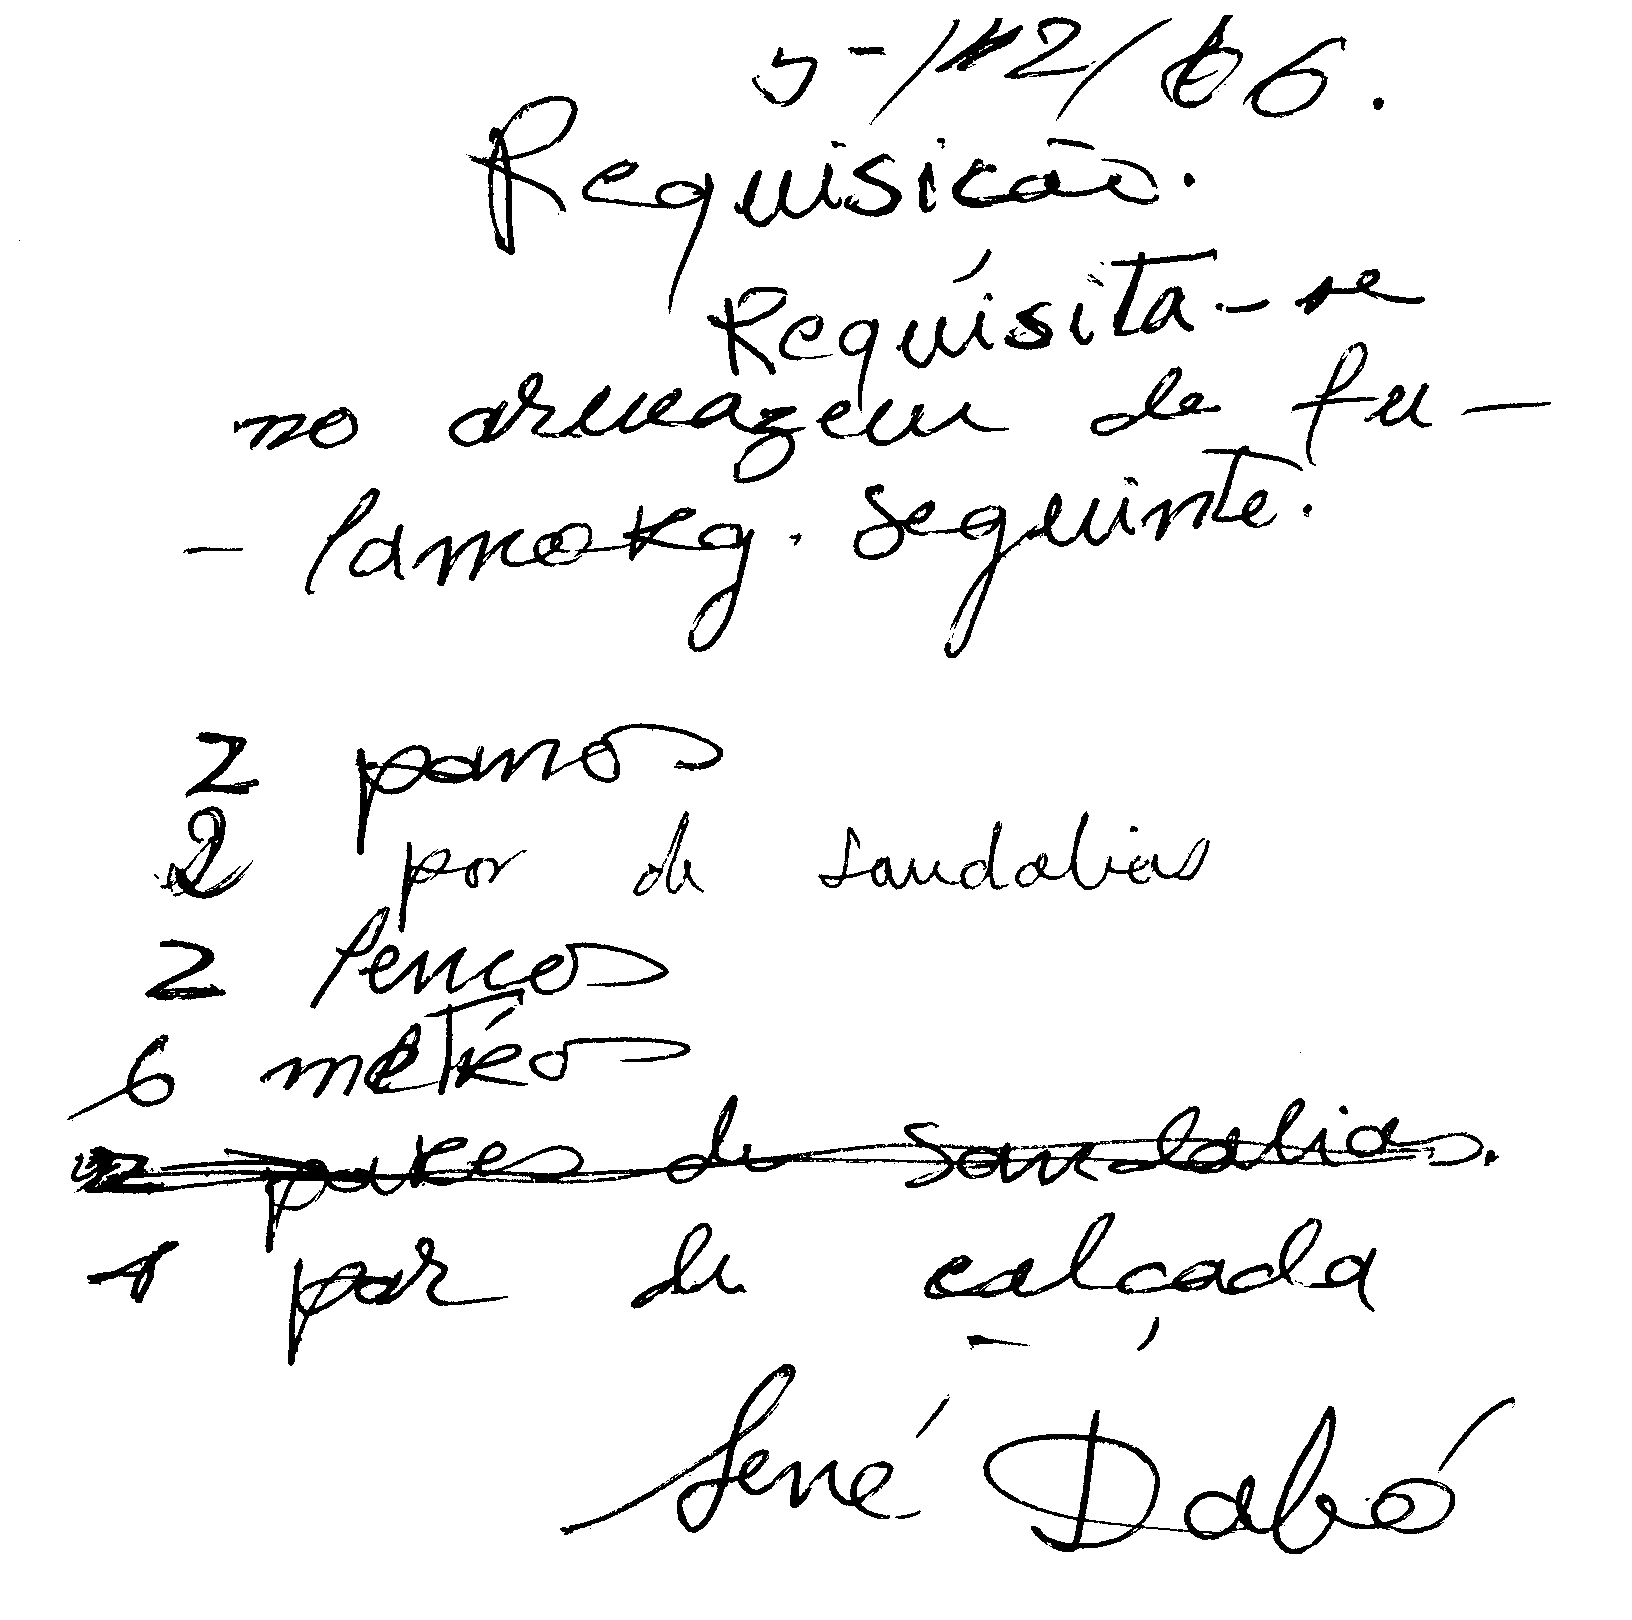 5-/12/66.
Requisicão.
Requísita-se
no armazem de fu-
-lamory. Seguinte.
2 panos
2 par de sandalias
2 lencos
6 metros
2 pares de sandalias.
1 par de calçada
Sené Dabó